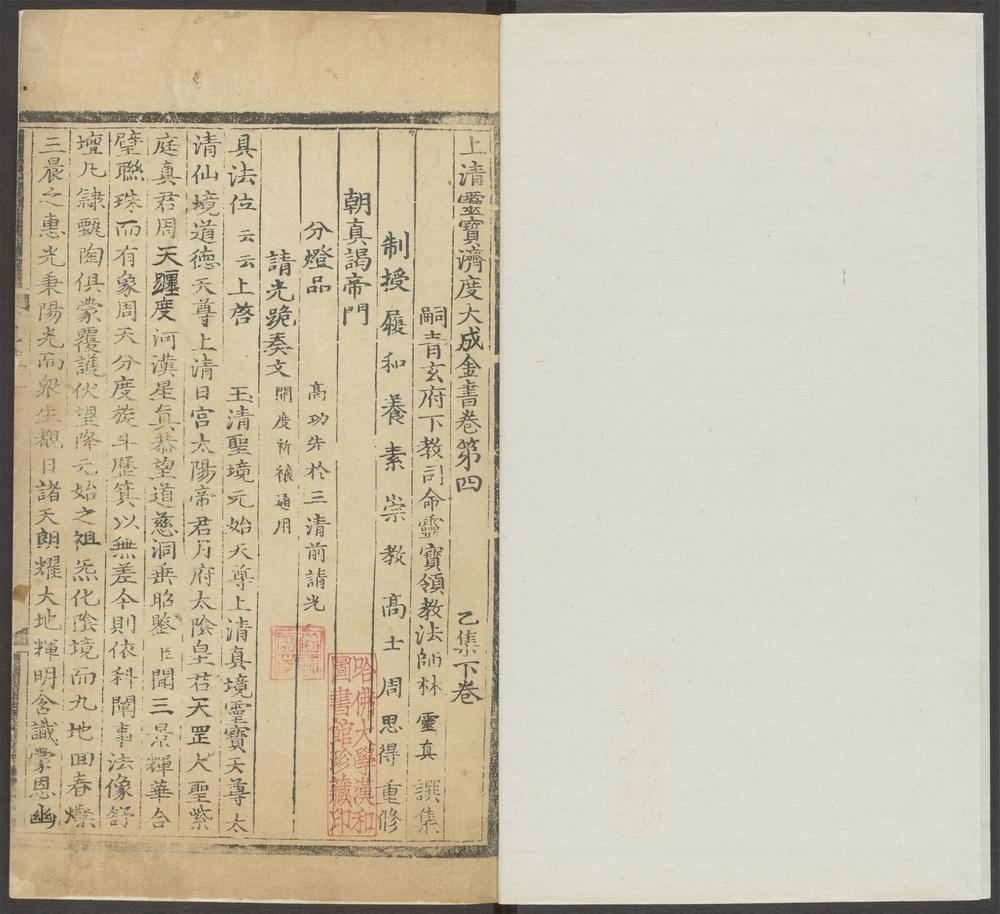 上清靈寶濟度大成金書卷第四 乙集下卷
嗣青玄府下教司命靈寶領教法師林 靈真 譔集
制授履和養素崇教高士 周思得 重修
朝真謁帝門
分燈品 高功步於三清前請光
請光跪奏文 開度祈禳通用
具法位 云云 上啓 玉清聖境元始天尊上清真境靈寶天尊太
清仙境道德天尊上清日宮太陽帝君月府太陰皇君天罡大聖紫
庭真君周天躔度河漢星真恭望道慈洞垂昭鑒 臣 聞三景輝華合
璧聯珠而有象周天分度旋斗歷箕以無差今則依科闡事法像舒
壇凡隸甄陶俱蒙覆護伏望降元始之祖炁化陰境而九地回春燦
三晨之惠光秉陽光而眾生觀日諸天朗耀大地輝明含識蒙恩幽
哈佛大學漢和
圖書館珍藏印